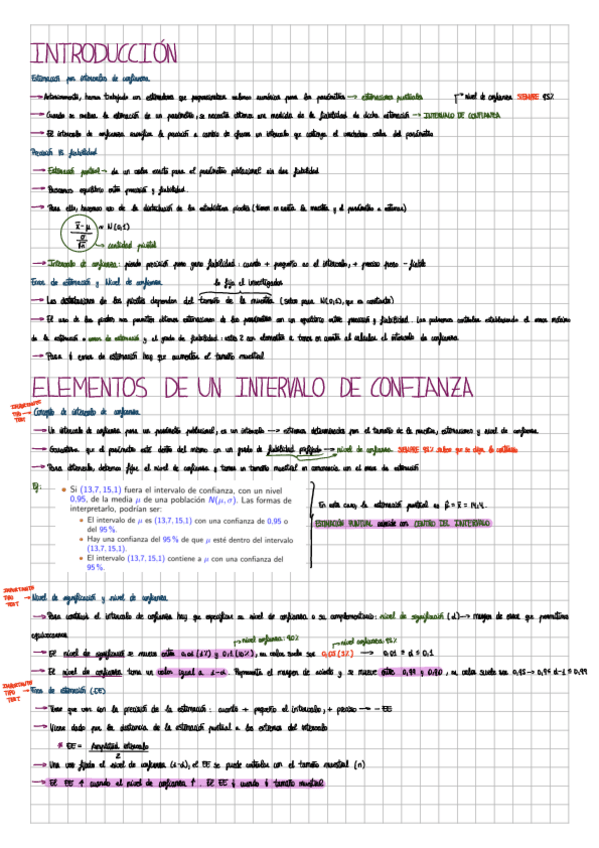 INTRODUCCIÓN
Estimación por intervalos de confianza
→ Anteriormente, hemos trabajado con estimadores que proporcionaban valores numéricos para los parámetros → estimaciones puntuales
nivel de confianza SIEMPRE 95%
→ Cuando se realiza la estimación de un parámetro, se necesita obtener una medida de la fiabilidad de dicha estimación → INTERVALO DE CONFIANZA
→ El intervalo de confianza sacrifica la precisión a cambio de ofrecer un intervalo que contenga el verdadero valor del parámetro
Precisión vs fiabilidad
→ Estimación puntual → da un valor exacto para el parámetro poblacional sin dar fiabilidad
→ Buscamos equilibrio entre precisión y fiabilidad.
→ Para ello, hacemos uso de la distribución de los estadísticos pivote (tienen en cuenta la muestra y el parámetro a estimar)
x̄ - μ / σ/√n ~ N(0,1)
→ cantidad pivotal
→ Intervalo de confianza: pierdo precisión pero gano fiabilidad: cuanto + pequeño es el intervalo, + preciso pero - fiable
Error de estimación y Nivel de confianza
lo fija el investigador
→ Las distribuciones de los pivotes dependen del tamaño de la muestra (salvo para N(0,1), que es constante)
→ El uso de los pivotes nos permiten obtener estimaciones de los parámetros con un equilibrio entre precisión y fiabilidad. Las podremos controlar estableciendo el error máximo
de la estimación o error de estimación y el grado de fiabilidad: estos 2 son elementos a tener en cuenta al calcular el intervalo de confianza
→ Para ↓ error de estimación hay que aumentar el tamaño muestral
ELEMENTOS DE UN INTERVALO DE CONFIANZA
IMPORTANTE TIPO TEST → Concepto de intervalo de confianza
→ Un intervalo de confianza para un parámetro poblacional, es un intervalo → extremos determinados por el tamaño de la muestra, estimaciones y nivel de confianza
→ Garantiza que el parámetro esté dentro del mismo con un grado de fiabilidad prefijado → nivel de confianza SIEMPRE 95% salvo que se diga lo contrario
→ Para obtenerlo, debemos fijar el nivel de confianza y tomar un tamaño muestral en consonancia con el error de estimación
Ej:
Si (13,7, 15,1) fuera el intervalo de confianza, con un nivel
0,95, de la media μ de una población N(μ, σ). Las formas de
interpretarlo, podrían ser:
El intervalo de μ es (13,7, 15,1) con una confianza de 0,95 o
del 95 %.
Hay una confianza del 95 % de que μ esté dentro del intervalo
(13,7, 15,1).
El intervalo (13,7, 15,1) contiene a μ con una confianza del
95 %.
En este caso, la estimación puntual es μ̂ = x̄ = 14,4.
ESTIMACIÓN PUNTUAL coincide con CENTRO DEL INTERVALO
IMPORTANTE TIPO TEST → Nivel de significación y nivel de confianza
→ Para construir el intervalo de confianza hay que especificar su nivel de confianza o su complementario: nivel de significación (α) → margen de error que permitimos
equivocarnos
nivel confianza: 90%
nivel confianza 95%
→ El nivel de significación se mueve entre 0,01 (1%) y 0,1 (10%), su valor suele ser 0,05 (5%) → 0.01 ≤ α ≤ 0.1
→ El nivel de confianza toma un valor igual a 1-α. Representa el margen de acierto y se mueve entre 0,99 y 0,90, su valor suele ser 0,95 → 0.90 ≤ 1-α ≤ 0.99
IMPORTANTE TIPO TEST → Error de estimación (EE)
→ Tiene que ver con la precisión de la estimación: cuanto + pequeño el intervalo, + preciso → - EE
→ Viene dado por la distancia de la estimación puntual a los extremos del intervalo
* EE = Amplitud intervalo / 2
→ Una vez fijado el nivel de confianza (1-α), el EE se puede controlar con el tamaño muestral (n)
→ El EE ↑ cuando el nivel de confianza ↑. El EE ↓ cuando ↑ tamaño muestral